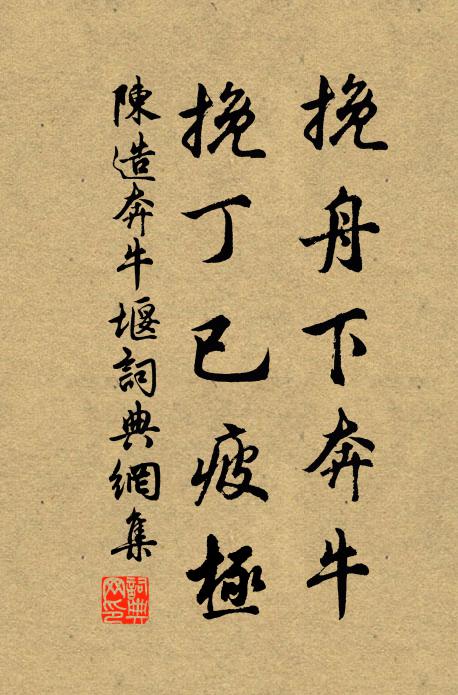 挽舟下奔牛
挽丁已疲極
陳造奔牛堰詞典網集
詞典網印